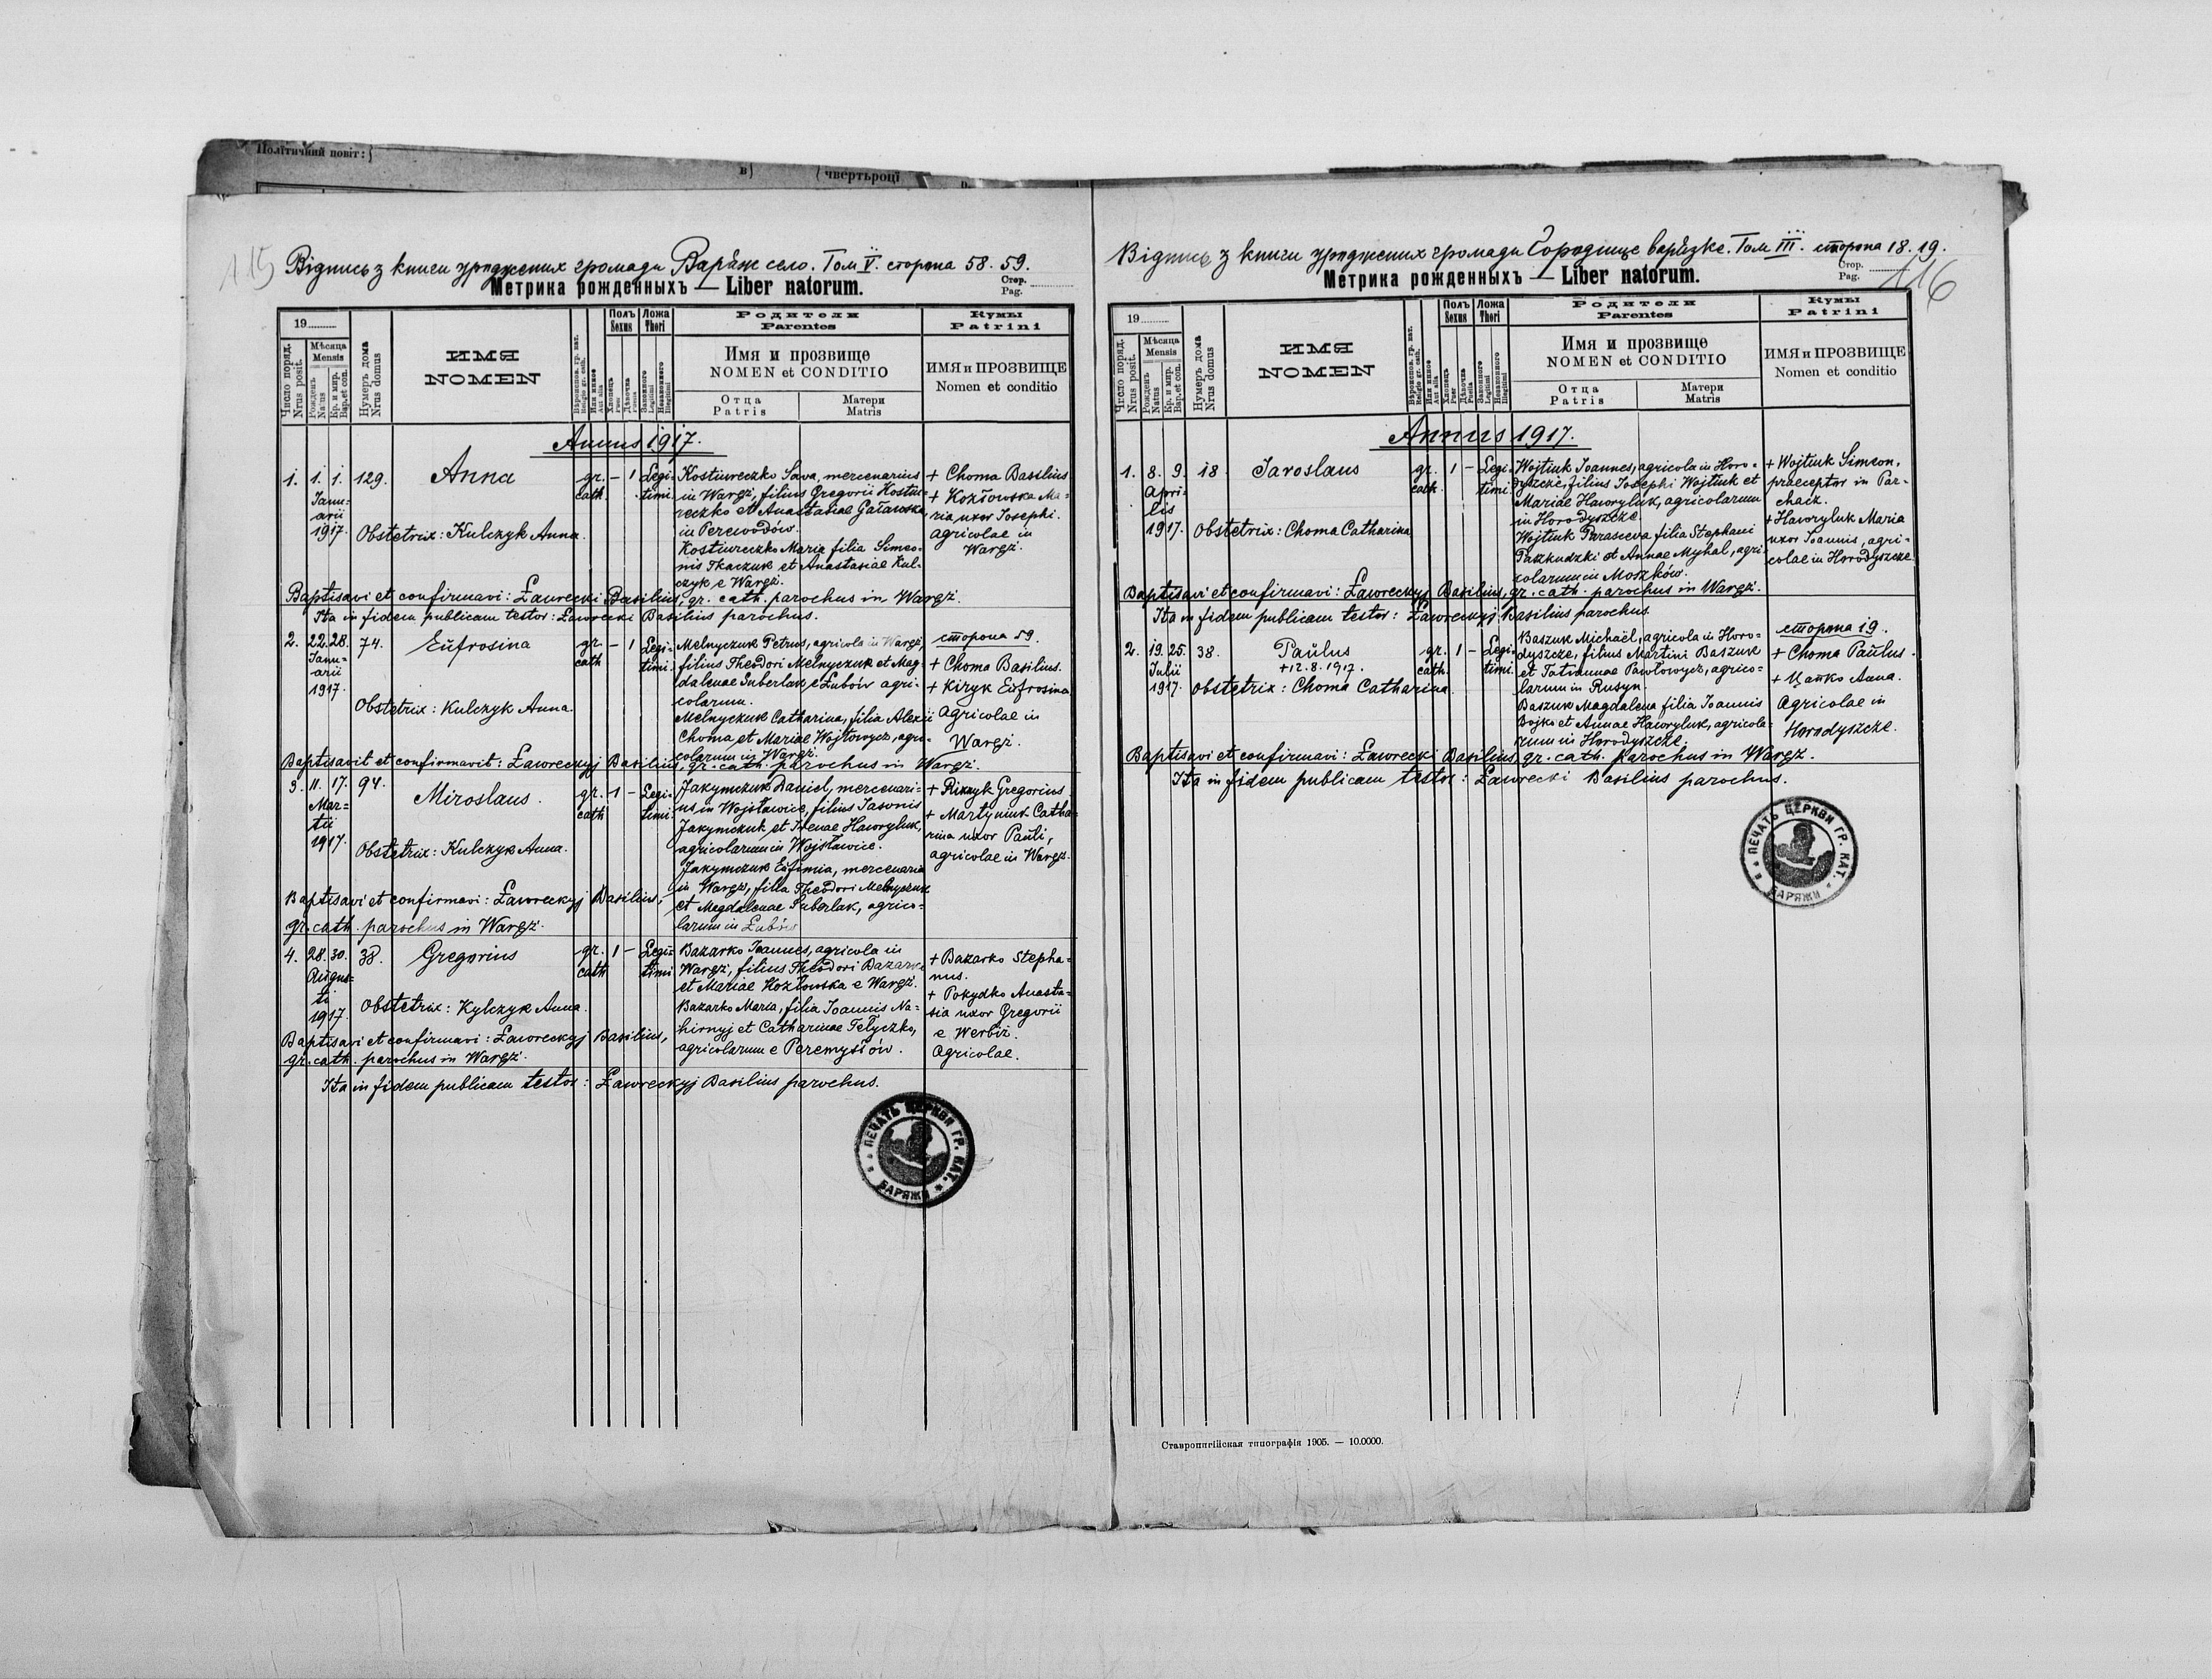 Політичний повіт:
в) ( чвертьроцї
115
Відпись з книги уроджених громади Варяж село. Том V. сторона 58. 59.
Метрика рожденныхъ — Liber natorum.
Стор.
Pag.
19
Число поряд.
Nrus posit.
Мѣсяца
Mensis
Рожденъ
Natus
Кр. и мир.
Bap. et con.
Нумеръ дома
Nrus domus
ИМЯ
NOMEN
Вѣроиспов. гр. кат.
Religio gr. cath.
Или инное
Aut alia
Полъ
Sexus
Хлопецъ
Puer
Дѣвочка
Puella
Ложа
Thori
Законного
Legitimi
Незаконного
Illegitimi
Родители
Parentes
Имя и прозвище
NOMEN et CONDITIO
Отца
Patris
Матери
Matris
Кумы
Patrini
ИМЯ и ПРОЗВИЩЕ
Nomen et conditio
Annus 1917.
1. 1. 1. 129. Anna gr. – 1 Legi-
Janu- cath. timi.
arii
1917. Obstetrix: Kulczyk Anna.
Kostiureczko Sava, mercenarius
in Wargż, filius Gregorii Kostiu-
reczko et Anastasiae Gaławska,
in Perewodów.
Kostiureczko Maria filia Simeo-
nis Tkaczuk et Anastasiae Kul-
czyk e Wargż.
+ Choma Basilius
+ Kozłowska Ma-
ria uxor Josephi.
agricolae in
Wargż.
Baptisavi et confirmavi: Ławrecki Basilius, gr. cath. parochus in Wargż.
Ita in fidem publicam testor: Ławrecki Basilius parochus.
2. 22. 28. 74. Eufrosina gr. – 1 Legi-
Janu- cath timi.
arii
1917.
Obstetrix: Kulczyk Anna.
Melnyczuk Petrus, agricola in Wargż,
filius Theodori Melnyczuk et Mag-
dalenae Suberlak e Łubów agri-
colarum.
Melnyczuk Catharina, filia Alexii
Choma et Mariae Wojtowycz, agri-
colarum in Wargż.
сторона 59.
+ Choma Basilius.
+ Kizyk Eufrosina
agricolae in
Wargż.
Baptisavit et confirmavit: Ławreckyj Basilius, gr. cath. parochus in Wargż.
3. 11. 17. 94. Miroslaus. gr. 1 – Legi-
Mar- cath timi.
tii
1917. Obstetrix: Kulczyk Anna.
Jakymczuk Daniel, mercenari-
us in Wojsławice, filius Jasonis
Jakymczuk et Irenae Hawryluk,
agricolarum in Wojsławice.
Jakymczuk Eufimia, mercenaria
in Wargż, filia Theodori Melnyczuk
et Magdalenae Suberlak, agrico-
larum in Łubów
+ Gregorius
+ Martyniuk Catha-
rina uxor Pauli,
agricolae in Wargż.
Baptisavi et confirmavi: Ławreckyj Basilius,
gr. cath. parochus in Wargż.
4. 28. 30. 38. Gregorius gr. 1 – Legi-
Augus- cath timi
ti
1917. Obstetrix: Kylczyk Anna.
Bazarko Joannes, agricola in
Wargż, filius Theodori Bazarko
et Mariae Kozłowska e Wargż.
Bazarko Maria, filia Joannis Na-
hirnyj et Catharinae Telyczko,
agricolarum e Peremysłów.
+ Bazarko Stepha-
nus.
+ Pokydko Anasta-
sia uxor Gregorii
e Werbiż.
agricolae.
Baptisavi et confirmavi: Ławreckyj Basilius,
gr. cath. parochus in Wargż.
Ita in fidem publicam testor: Ławreckyj Basilius parochus.
ПЕЧАТЬ ЦЕРКВИ ГР. КАТ. В ВАРЯЖИ
116
Відпись з книги уроджених громади Городище варязке. Том III. сторона 18. 19.
Метрика рожденныхъ — Liber natorum.
Стор.
Pag.
19
Число поряд.
Nrus posit.
Мѣсяца
Mensis
Рожденъ
Natus
Кр. и мир.
Bap. et con.
Нумеръ дома
Nrus domus
ИМЯ
NOMEN
Вѣроиспов. гр. кат.
Religio gr. cath.
Или инное
Aut alia
Полъ
Sexus
Хлопецъ
Puer
Дѣвочка
Puella
Ложа
Thori
Законного
Legitimi
Незаконного
Illegitimi
Родители
Parentes
Имя и прозвище
NOMEN et CONDITIO
Отца
Patris
Матери
Matris
Кумы
Patrini
ИМЯ и ПРОЗВИЩЕ
Nomen et conditio
Annus 1917.
1. 8. 9. 18 Jaroslaus gr. 1 – Legi-
Apri- cath. timi.
lis
1917. Obstetrix: Choma Catharina
Wojtiuk Joannes, agricola in Horo-
dyszcze, filius Josephi Wojtiuk et
Mariae Hawryluk, agricolarum
in Horodyszcze.
Wojtiuk Parasceva filia Stephani
Pazkudzki et Annae Myhal, agri-
colarum in Moszków.
+ Wojtiuk Simeon,
praeceptor in Par-
chacz.
+ Hawryluk Maria
uxor Joannis, agri-
colae in Horodyszcze
Baptisavi et confirmavi: Ławreckyj Basilius, gr. cath. parochus in Wargż.
Ita in fidem publicam testor: Ławreckyj Basilius parochus.
2. 19. 25. 38. Paulus gr. 1 – Legi-
Julii +12. 8. 1917. cath. timi.
1917. Obstetrix: Choma Catharina.
Baszuk Michaël, agricola in Horo-
dyszcze, filius Martini Baszuk
et Tatiannae Pawłowycz, agrico-
larum in Rusyn.
Baszuk Magdalena filia Joannis
Bojko et Annae Hawryluk, agricola-
rum in Horodyszcze.
сторона 19.
+ Choma Paulus.
+ Цапко Anna.
Agricolae in
Horodyszcze.
Baptisavi et confirmavi: Ławrecki Basilius, gr. cath. parochus in Wargż.
Ita in fidem publicam testor: Ławrecki Basilius parochus.
ПЕЧАТЬ ЦЕРКВИ ГР. КАТ. В ВАРЯЖИ
Ставропигійская типографія 1905. — 10.0000.